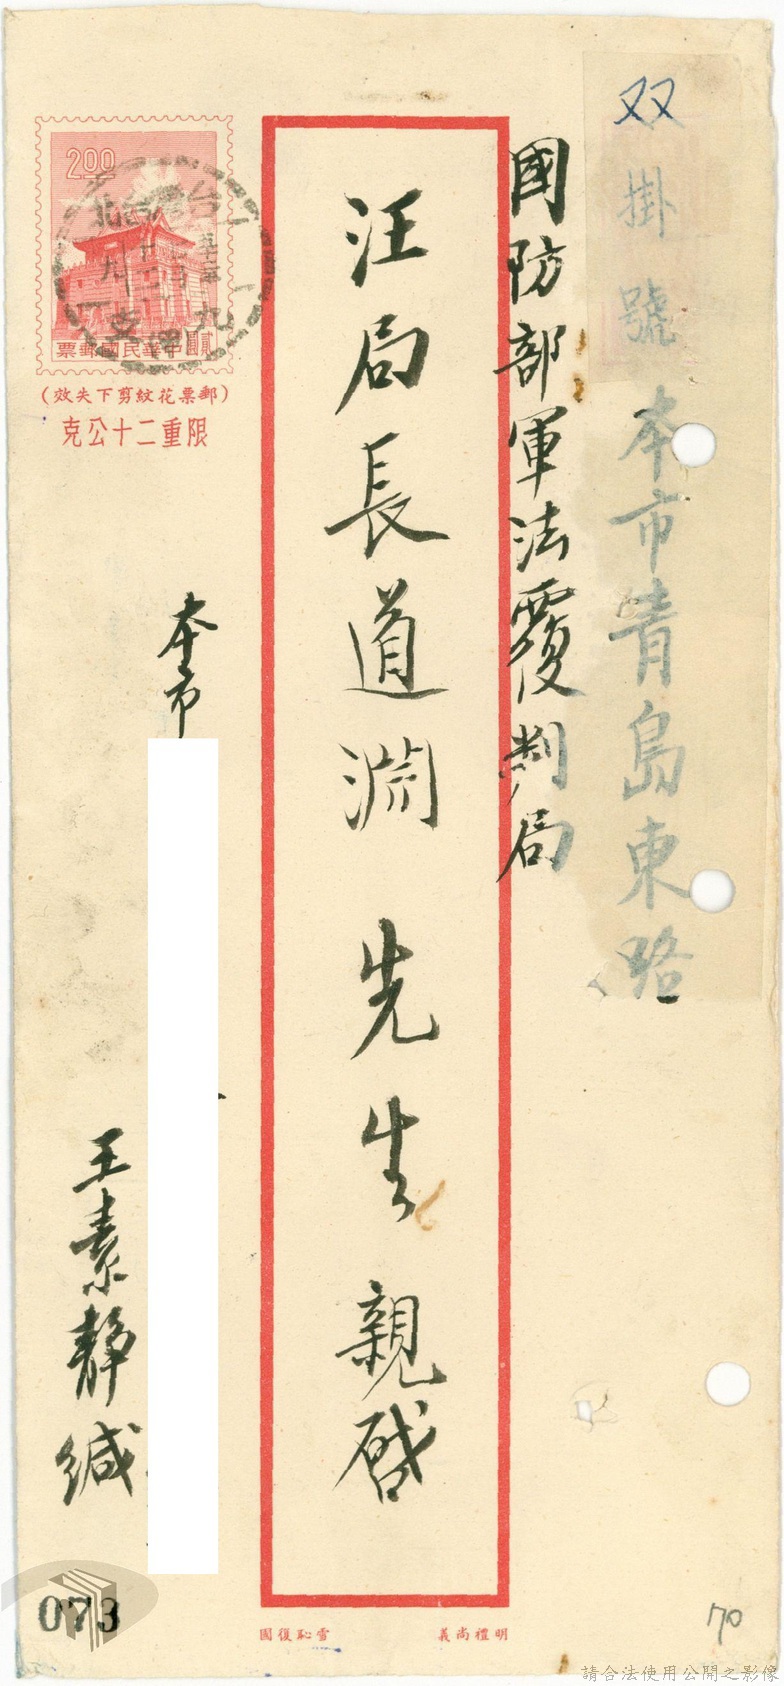 双掛號
本市青島東路
國防部軍法覆判局
汪局長道淵 先生 親啓
本市
王素靜緘
2.00
中華民國郵票
貳圓
(郵票花紋剪下失效)
限重二十公克
明禮尚義
雪恥復國
073
170
請合法使用公開之影像